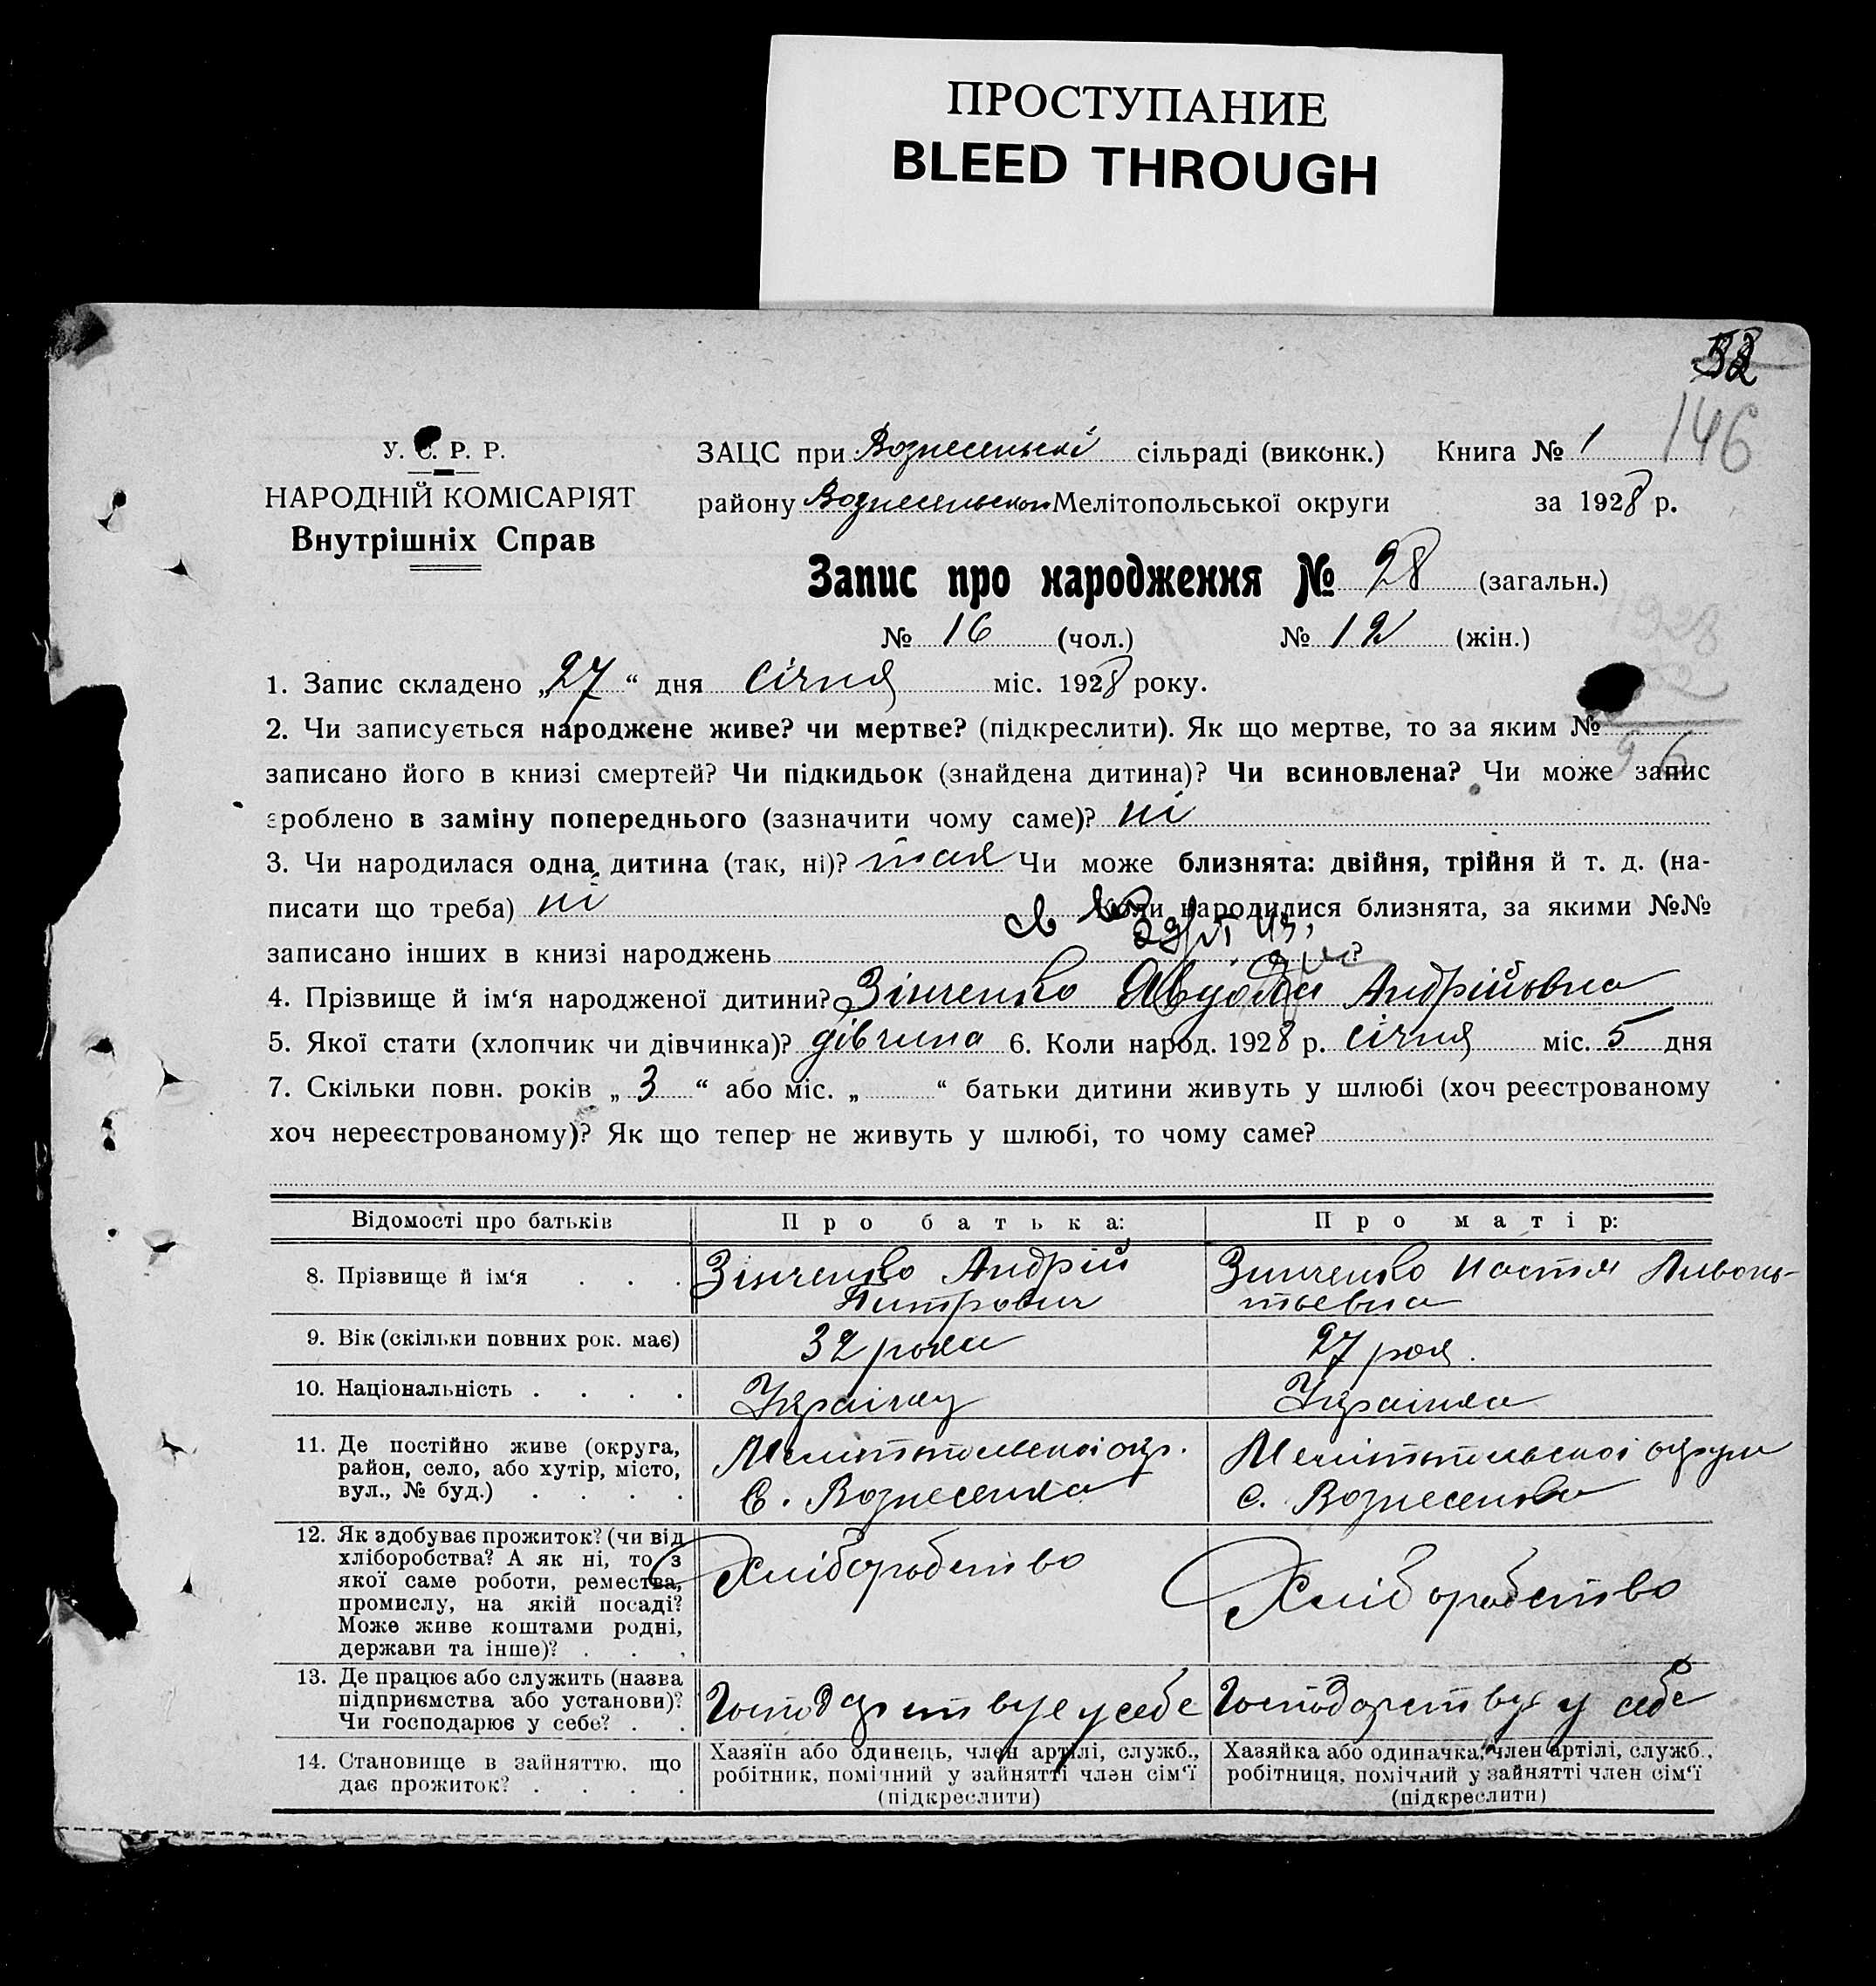 ПРОСТУПАНИЕ
BLEED THROUGH
146
У. С. Р. Р.
НАРОДНІЙ КОМІСАРІЯТ
Внутрішніх Справ
ЗАЦС при Вознесенській сільраді (виконк.) Книга № 1
району Мелітопольської округи за 1928 р.
Запис про народження № 28 (загальн.)
№ 16 (чол.) № 12 (жін.)
1. Запис складено „27“ дня січня міс. 1928 року.
2. Чи записується народжене живе? чи мертве? (підкреслити). Як що мертве, то за яким №
записано його в книзі смертей? Чи підкидьок (знайдена дитина)? Чи всиновлена? Чи може запис
зроблено в заміну попереднього (зазначити чому саме)? ні
3. Чи народилася одна дитина (так, ні)? так Чи може близнята: двійня, трійня й т. д. (на-
писати що треба) ні Коли народилися близнята, за якими №№
записано інших в книзі народжень ?
4. Прізвище й ім‘я народженої дитини? Зінченко Андрійовна
5. Якої стати (хлопчик чи дівчинка)? дівчина 6. Коли народ. 1928 р. січня міс. 5 дня
7. Скільки повн. років „3“ або міс. „ “ батьки дитини живуть у шлюбі (хоч реєстрованому
хоч нереєстрованому)? Як що тепер не живуть у шлюбі, то чому саме?
Відомості про батьків Про батька: Про матір:
8. Прізвище й ім‘я . . . Зінченко Андрій Зинченко Настя Ливонь-
тьевна
9. Вік (скільки повних рок. має) 32 роки 27 рок.
10. Національність . . . . Українец Українка
11. Де постійно живе (округа, район, село, або хутір, місто, вул., № буд.) . . . . Мелитопольскоі окр. Мелітопольскоі округи
с. Вознесенка с. Вознесенка
12. Як здобуває прожиток? (чи від хліборобства? А як ні, то з якої саме роботи, ремества, промислу, на якій посаді? Може живе коштами родні, держави та інше)? . . . Хліборобство Хліборобство
13. Де працює або служить (назва підприємства або установи)? Чи господарює у себе? . . Господарствує у себе Господарству у себе
14. Становище в зайняттю, що дає прожиток? . . . . Хазяїн або одинець, член артілі, служб., робітник, помічний у зайнятті член сім‘ї (підкреслити) Хазяйка або одиначка, член артілі, служб., робітниця, помічний у зайнятті член сім‘ї (підкреслити)